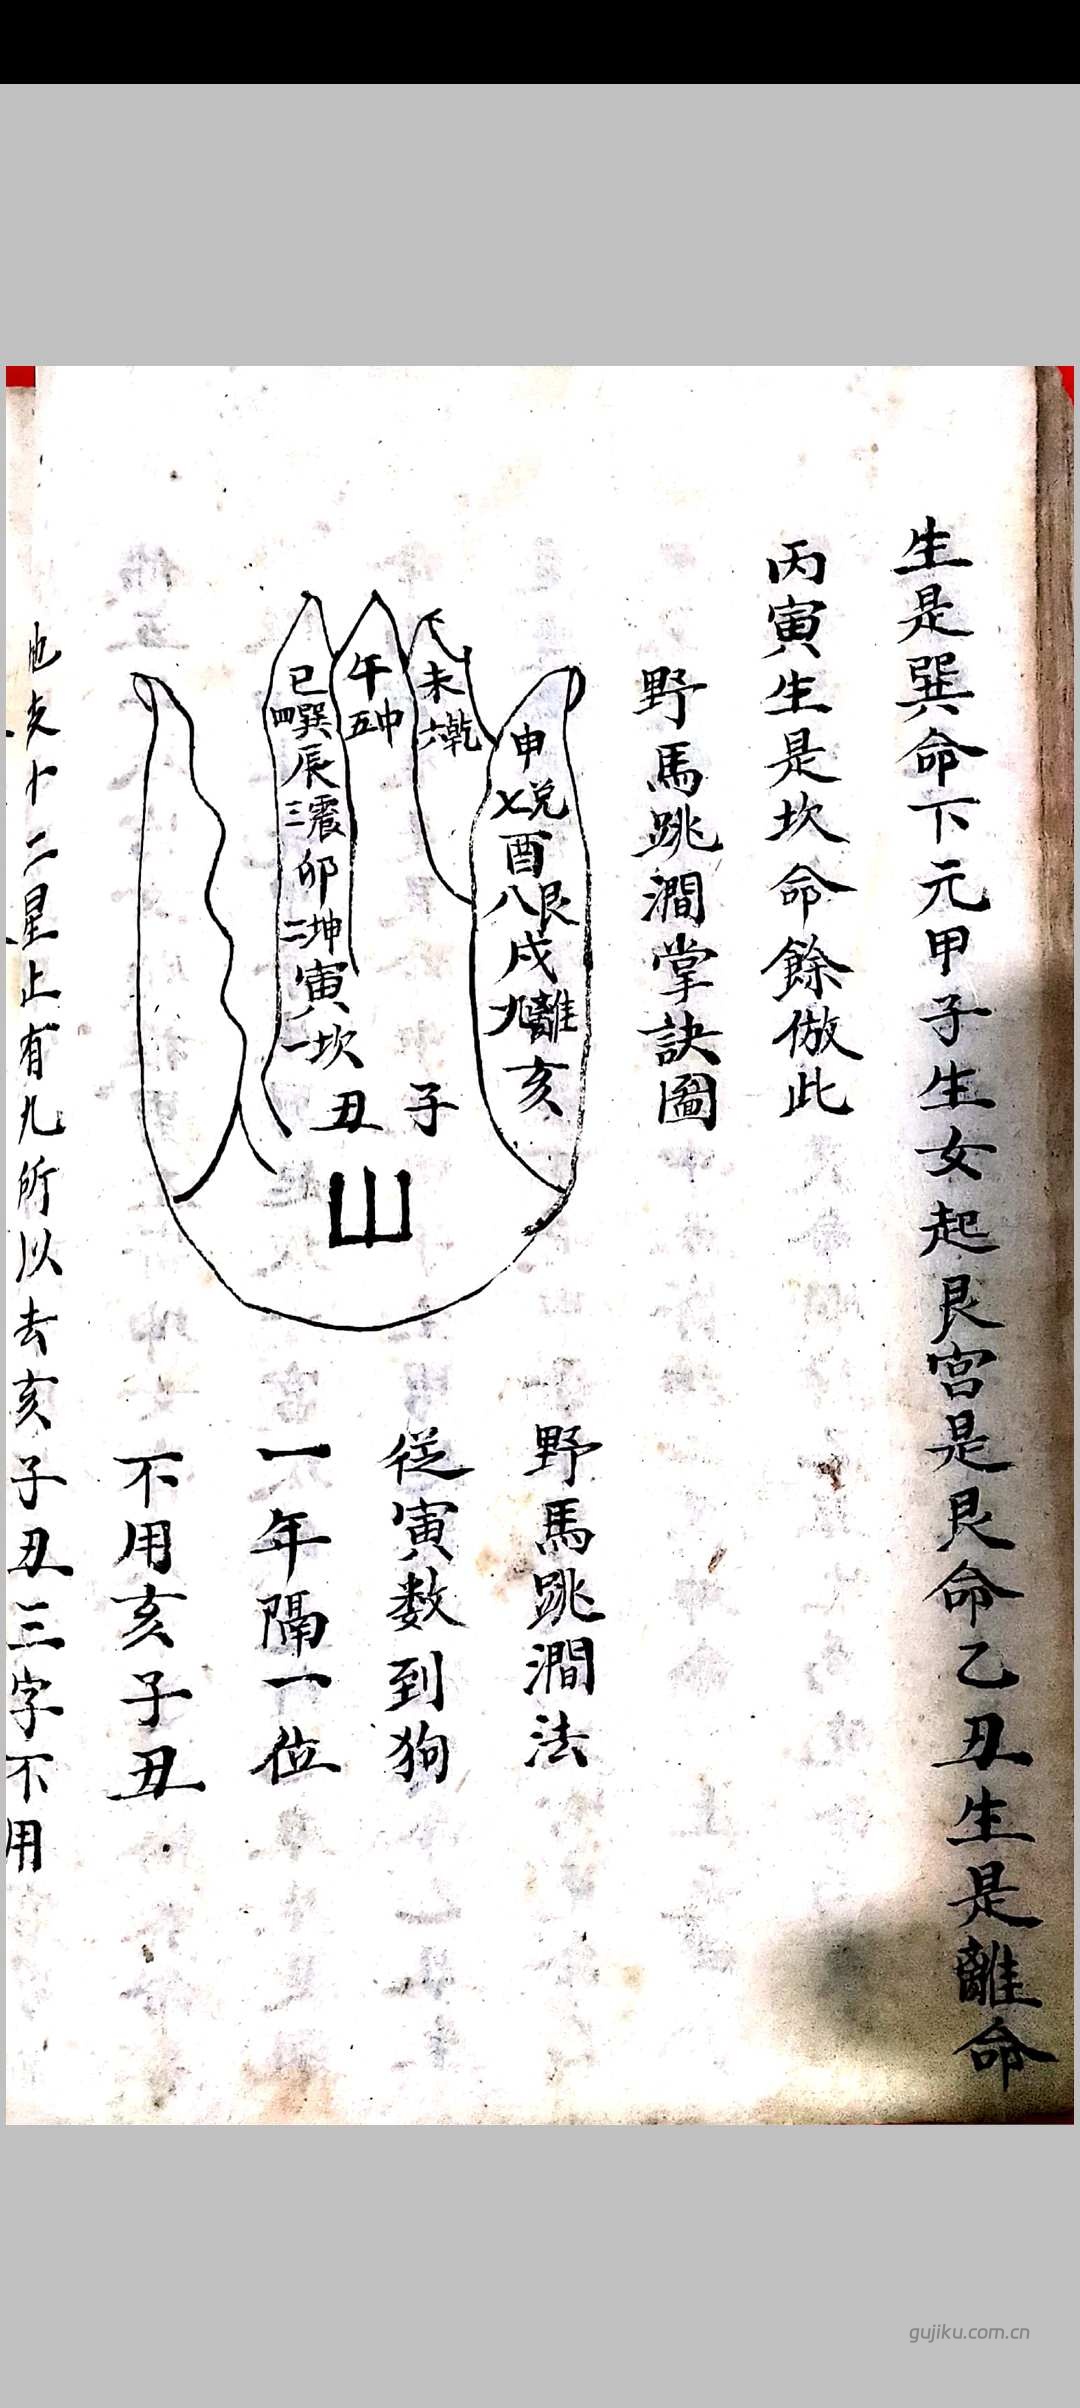 生是巽命下元甲子生女起艮宮是艮命乙丑生是離命
丙寅生是坎命餘倣此
野馬跳澗掌訣圖
申
七兌
酉
八艮
戌
九離
亥
未
六乾
午
五中
巳
四巽
辰
三震
卯
二坤
寅
一坎
丑
子
山
野馬跳澗法
從寅数到狗
一年隔一位
不用亥子丑
地支十二星止有九所以去亥子丑三字不用
gujiku.com.cn